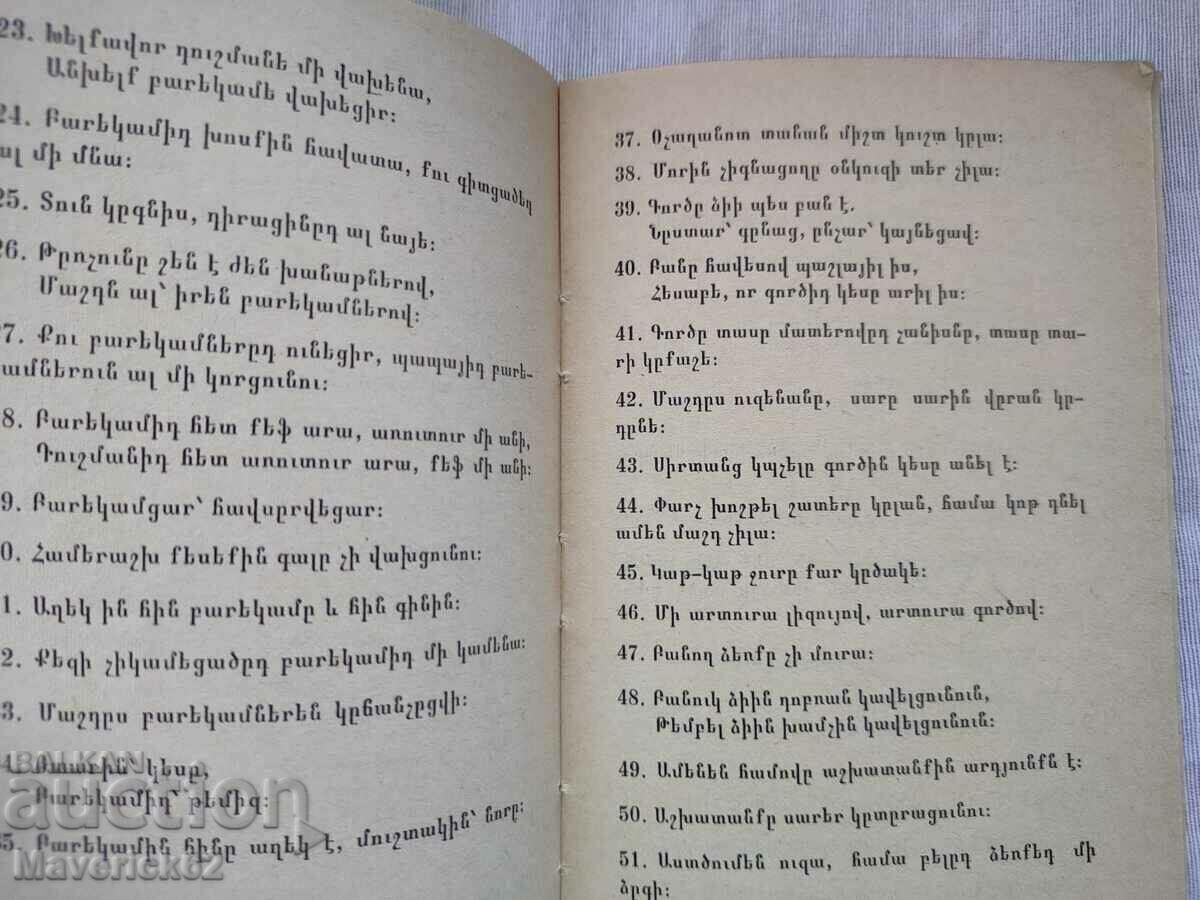 23. Խելքավոր դուշմանե մի վախենա,
Անխելք բարեկամե վախեցիր։
24. Բարեկամիդ խոսքին հավատա, քու գիտցածեդ
ալ մի մնա։
25. Տուն կըգնիս, դիրացինըդ ալ նայե։
26. Թըռչունը շեն է ժեն խանաթներով,
Մաշդն ալ՝ իրեն բարեկամներով։
27. Քու բարեկամներըդ ունեցիր, պապայիդ բարե-
կամներուն ալ մի կորցունու։
8. Բարեկամիդ հետ քեֆ արա, առուտուր մի անի,
Դուշմանիդ հետ առուտուր արա, քեֆ մի անի։
9. Բարեկամցար՝ հավսըրվեցար։
0. Համերաշխ քեսեքին գալը չի վախցունու։
1. Աղեկ ին հին բարեկամը և հին գինին։
2. Քեզի չիկամեցածըդ բարեկամիդ մի կամենա։
3. Մաշդըս բարեկամներեն կըճանչըցվի։
կեսը,
Բարեկամիդ՝ թեմիզ։
35. Բարեկամին հինը աղեկ է, մուշտակին՝ նորը։
37. Օչաղանոտ տանան միշտ կուշտ կըլա։
38. Մորին չիգնացողը օնկուզի տեր չիլա։
39. Գործը ձիի պես բան է.
Նըստար՝ գընաց, ընչար՝ կայնեցավ։
40. Բանը հավեսով պաշլայիլ իս,
Հեսաբե, որ գործիդ կեսը արիլ իս։
41. Գործը տասը մատերովըդ չանիսնը, տասը տա-
րի կըքաշե։
42. Մաշդըս ուզենանը, սարը սարին վըրան կը-
դընե։
43. Սիրտանց կպչելը գործին կեսը անել է։
44. Փարչ խոշթել շատերը կըլան, համա կոթ դնել
ամեն մաշդ չիլա։
45. Կաթ-կաթ ջուրը քար կըծակե։
46. Մի արտուրա լիզույով, արտուրա գործով։
47. Բանող ձեռքը չի մուրա։
48. Բանուկ ձիին դոբռան կավելցունուն,
Թեմբել ձիին խամչին կավելցունուն։
49. Ամենեն համովը աշխատանքին արդյունքն է։
50. Աշխատանքը սարեր կըտըրացունու։
51. Աստծումեն ուզա, համա բելըդ ձեռքեդ մի
ձըգի։
BALKAN
auction
Maverick62